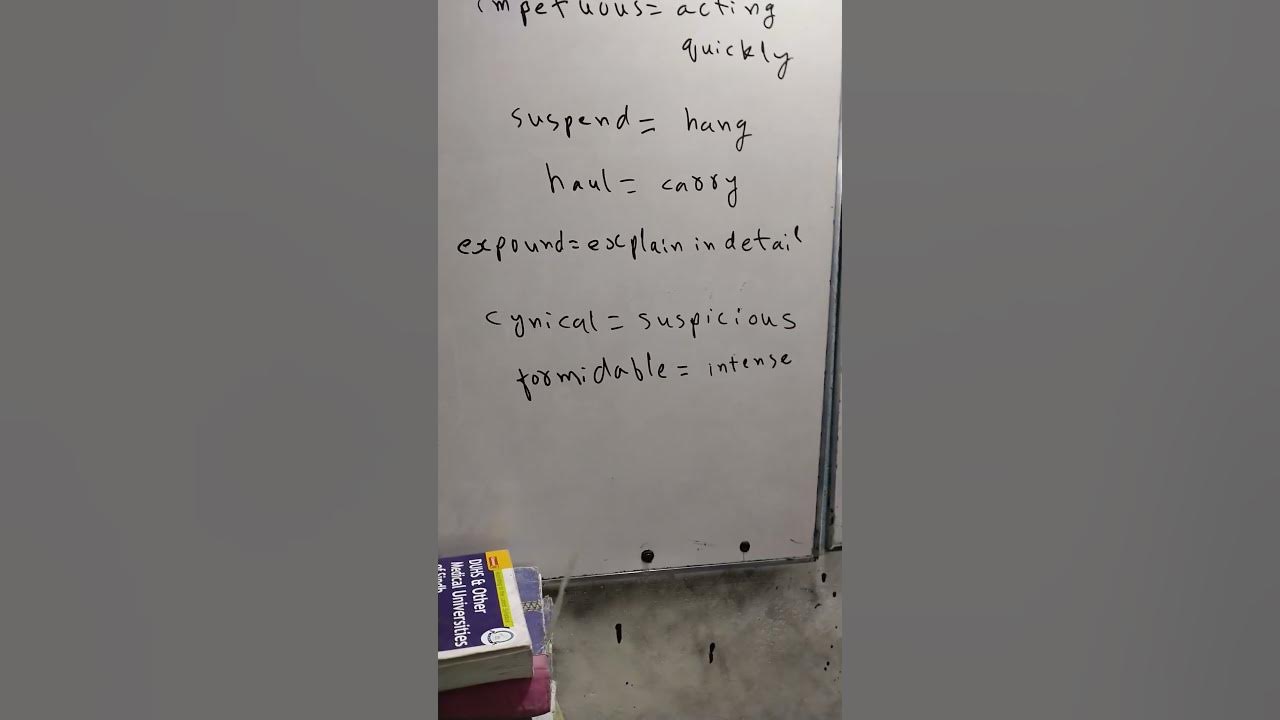 impetuous= acting
quickly
suspend= hang
haul= carry
expound= explain in detail
cynical= suspicious
formidable= intense
DUHS & Other
Medical Universities
of Sindh